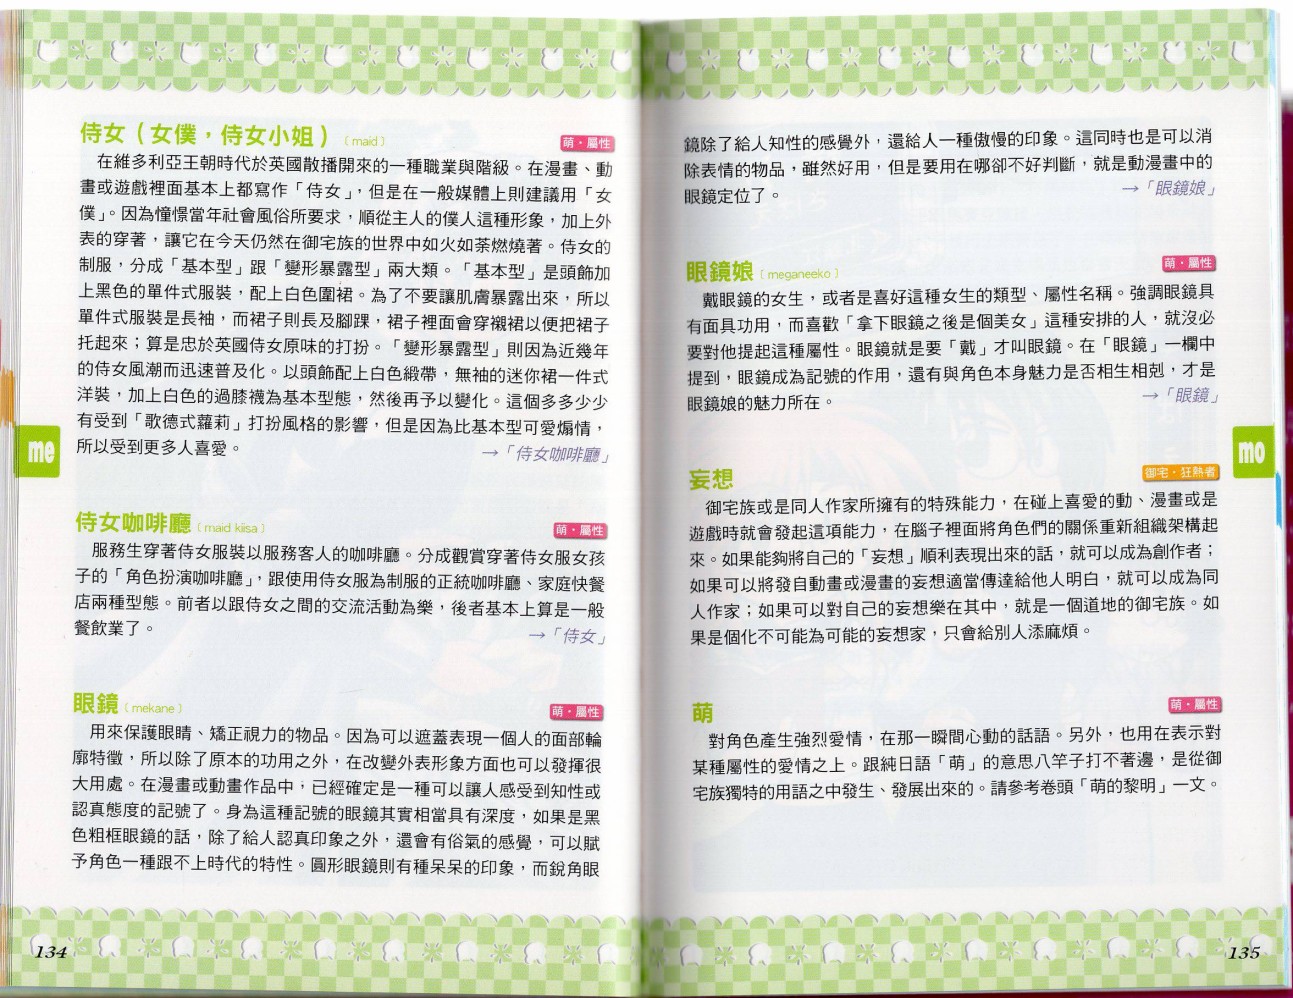 侍女（女僕，侍女小姐）〔maid〕
萌・屬性
在維多利亞王朝時代於英國散播開來的一種職業與階級。在漫畫、動
畫或遊戲裡面基本上都寫作「侍女」，但是在一般媒體上則建議用「女
僕」。因為憧憬當年社會風俗所要求，順從主人的僕人這種形象，加上外
表的穿著，讓它在今天仍然在御宅族的世界中如火如荼燃燒著。侍女的
制服，分成「基本型」跟「變形暴露型」兩大類。「基本型」是頭飾加
上黑色的單件式服裝，配上白色圍裙。為了不要讓肌膚暴露出來，所以
單件式服裝是長袖，而裙子則長及腳踝，裙子裡面會穿襯裙以便把裙子
托起來；算是忠於英國侍女原味的打扮。「變形暴露型」則因為近幾年
的侍女風潮而迅速普及化。以頭飾配上白色緞帶，無袖的迷你裙一件式
洋裝，加上白色的過膝襪為基本型態，然後再予以變化。這個多多少少
有受到「歌德式蘿莉」打扮風格的影響，但是因為比基本型可愛煽情，
所以受到更多人喜愛。
→「侍女咖啡廳」
me
侍女咖啡廳〔maid kiisa〕
萌・屬性
服務生穿著侍女服裝以服務客人的咖啡廳。分成觀賞穿著侍女服女孩
子的「角色扮演咖啡廳」，跟使用侍女服為制服的正統咖啡廳、家庭快餐
店兩種型態。前者以跟侍女之間的交流活動為樂，後者基本上算是一般
餐飲業了。
→「侍女」
眼鏡〔mekane〕
萌・屬性
用來保護眼睛、矯正視力的物品。因為可以遮蓋表現一個人的面部輪
廓特徵，所以除了原本的功用之外，在改變外表形象方面也可以發揮很
大用處。在漫畫或動畫作品中，已經確定是一種可以讓人感受到知性或
認真態度的記號了。身為這種記號的眼鏡其實相當具有深度，如果是黑
色粗框眼鏡的話，除了給人認真印象之外，還會有俗氣的感覺，可以賦
予角色一種跟不上時代的特性。圓形眼鏡則有種呆呆的印象，而銳角眼
134
鏡除了給人知性的感覺外，還給人一種傲慢的印象。這同時也是可以消
除表情的物品，雖然好用，但是要用在哪卻不好判斷，就是動漫畫中的
眼鏡定位了。
→「眼鏡娘」
眼鏡娘〔meganeeko〕
萌・屬性
戴眼鏡的女生，或者是喜好這種女生的類型、屬性名稱。強調眼鏡具
有面具功用，而喜歡「拿下眼鏡之後是個美女」這種安排的人，就沒必
要對他提起這種屬性。眼鏡就是要「戴」才叫眼鏡。在「眼鏡」一欄中
提到，眼鏡成為記號的作用，還有與角色本身魅力是否相生相剋，才是
眼鏡娘的魅力所在。
→「眼鏡」
mo
妄想
御宅・狂熱者
御宅族或是同人作家所擁有的特殊能力，在碰上喜愛的動、漫畫或是
遊戲時就會發起這項能力，在腦子裡面將角色們的關係重新組織架構起
來。如果能夠將自己的「妄想」順利表現出來的話，就可以成為創作者；
如果可以將發自動畫或漫畫的妄想適當傳達給他人明白，就可以成為同
人作家；如果可以對自己的妄想樂在其中，就是一個道地的御宅族。如
果是個化不可能為可能的妄想家，只會給別人添麻煩。
萌
萌・屬性
對角色產生強烈愛情，在那一瞬間心動的話語。另外，也用在表示對
某種屬性的愛情之上。跟純日語「萌」的意思八竿子打不著邊，是從御
宅族獨特的用語之中發生、發展出來的。請參考卷頭「萌的黎明」一文。
135